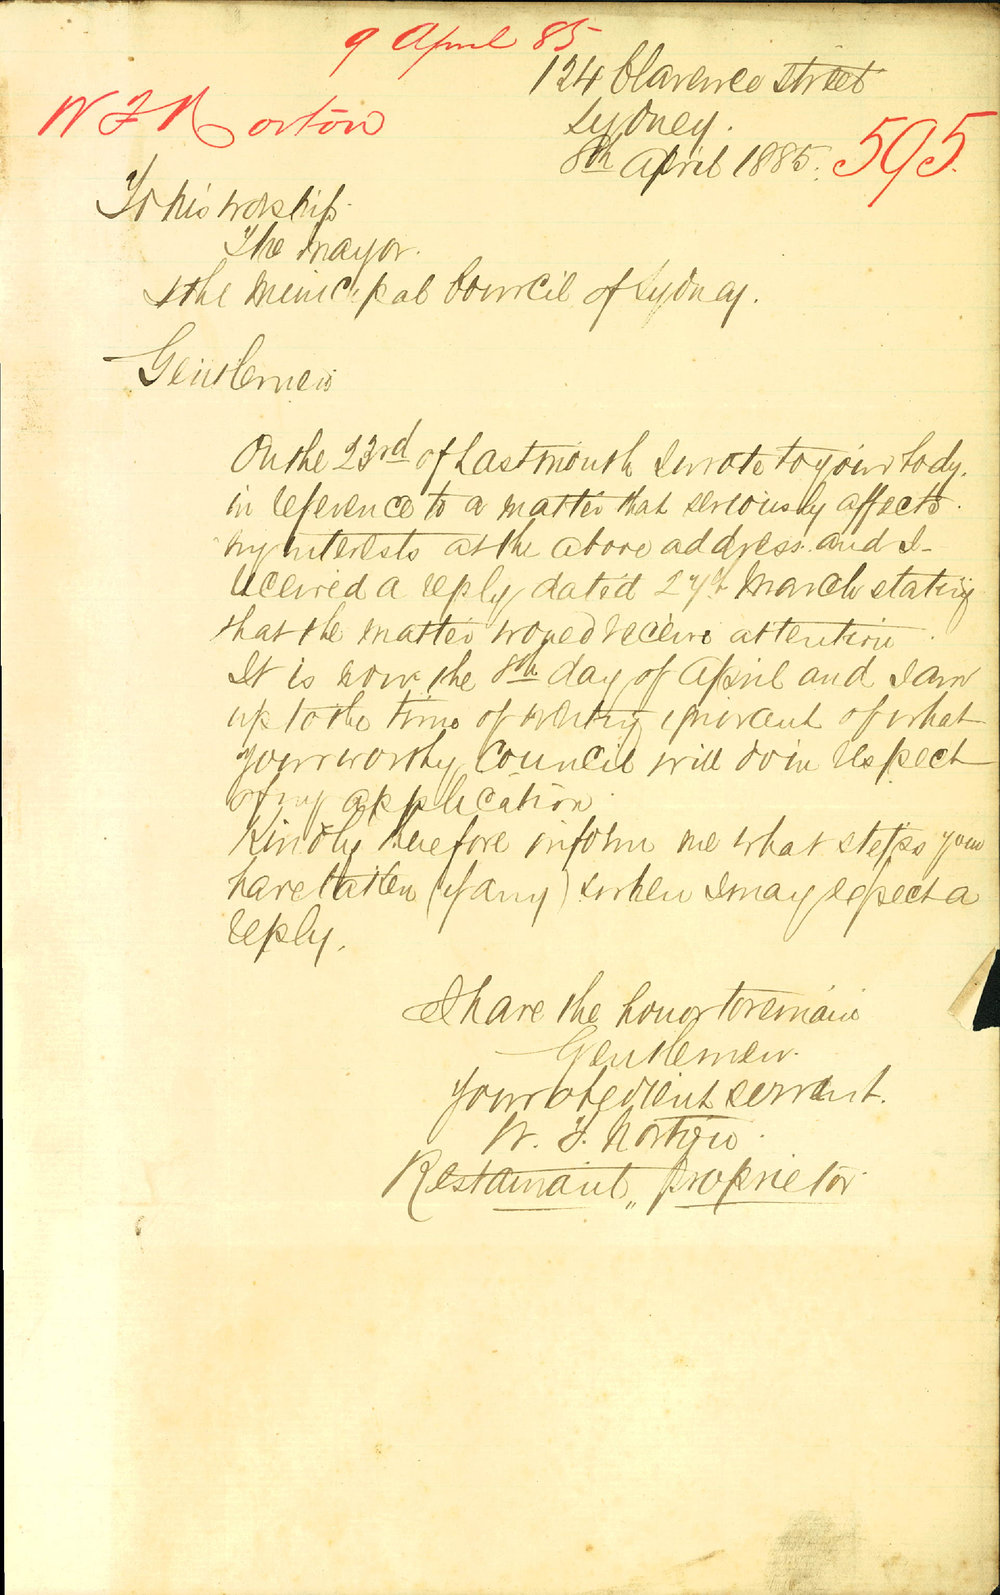 9 April 85
124 Clarence Street
W F Norton
Sydney.
8th April 1885.
595.
To his worship
The Mayor.
& the Municipal Council of Sydney.
Gentlemen
On the 23rd of Last month I wrote to your body.
in reference to a matter that seriously affects
my interests at the above address. and I
received a reply dated 27th March stating
that the matter would receive attention.
It is now the 8th day of April and I am
up to the time of writing ignorant of what
your worthy Council will do in respect
of my application.
Kindly therefore inform me what steps you
have taken (if any) & when I may expect a
reply.
I have the honor to remain
Gentlemen.
Your obedient servant.
W. F. Norton.
Restaurant „ proprietor